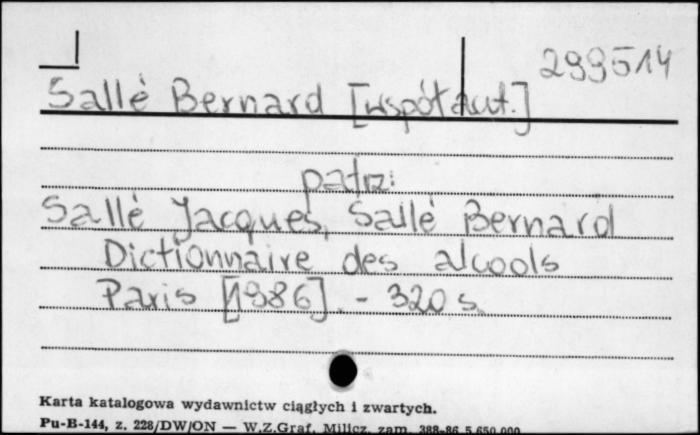 299514
Sallé Bernard [współaut.]
patrz:
Sallé Jacques, Sallé Bernard
Dictionnaire des alcools
Paris [1986]. - 320 s.
Karta katalogowa wydawnictw ciągłych i zwartych.
Pu-B-144, z. 228/DW/ON — W.Z.Graf. Milicz, zam. 388-86 5.650.000